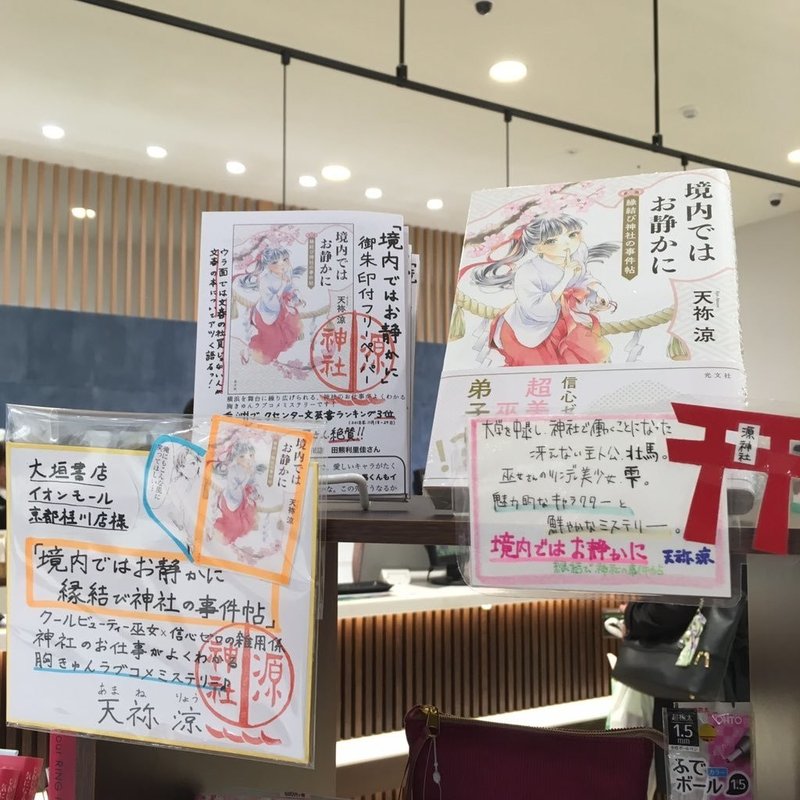 「境内ではお静かに」
御朱印付フリーペーパー
境内では
お静かに
縁結び神社の事件帖
天祢 涼
源
神社
横浜を舞台に繰り広げられる、神社のお仕事がよくわかる
胸きゅんラブコメミステリーです
絶賛!!
田熊利里佳さん
境内では
お静かに
縁結び神社の事件帖
天祢 涼
光文社
信心ゼ
超美
巫
弟子
大垣書店
イオンモール
京都桂川店様
境内では
お静かに
天祢 涼
「境内ではお静かに
縁結び神社の事件帖」
クールビューティー巫女×信心ゼロの雑用係
神社のお仕事がよくわかる
胸きゅんラブコメミステリー
あまね りょう
天祢 涼
源
神社
大学を中退し 神社で働くことになった
冴えない主人公 壮馬。
巫女さんのツンデレ美少女 雫。
魅力的なキャラクターと
鮮やかなミステリー。
境内ではお静かに 天祢 涼
縁結び神社の事件帖
源神社
超極太
1.5
mm
OHTO
ふで
ボール
カラー
1.5